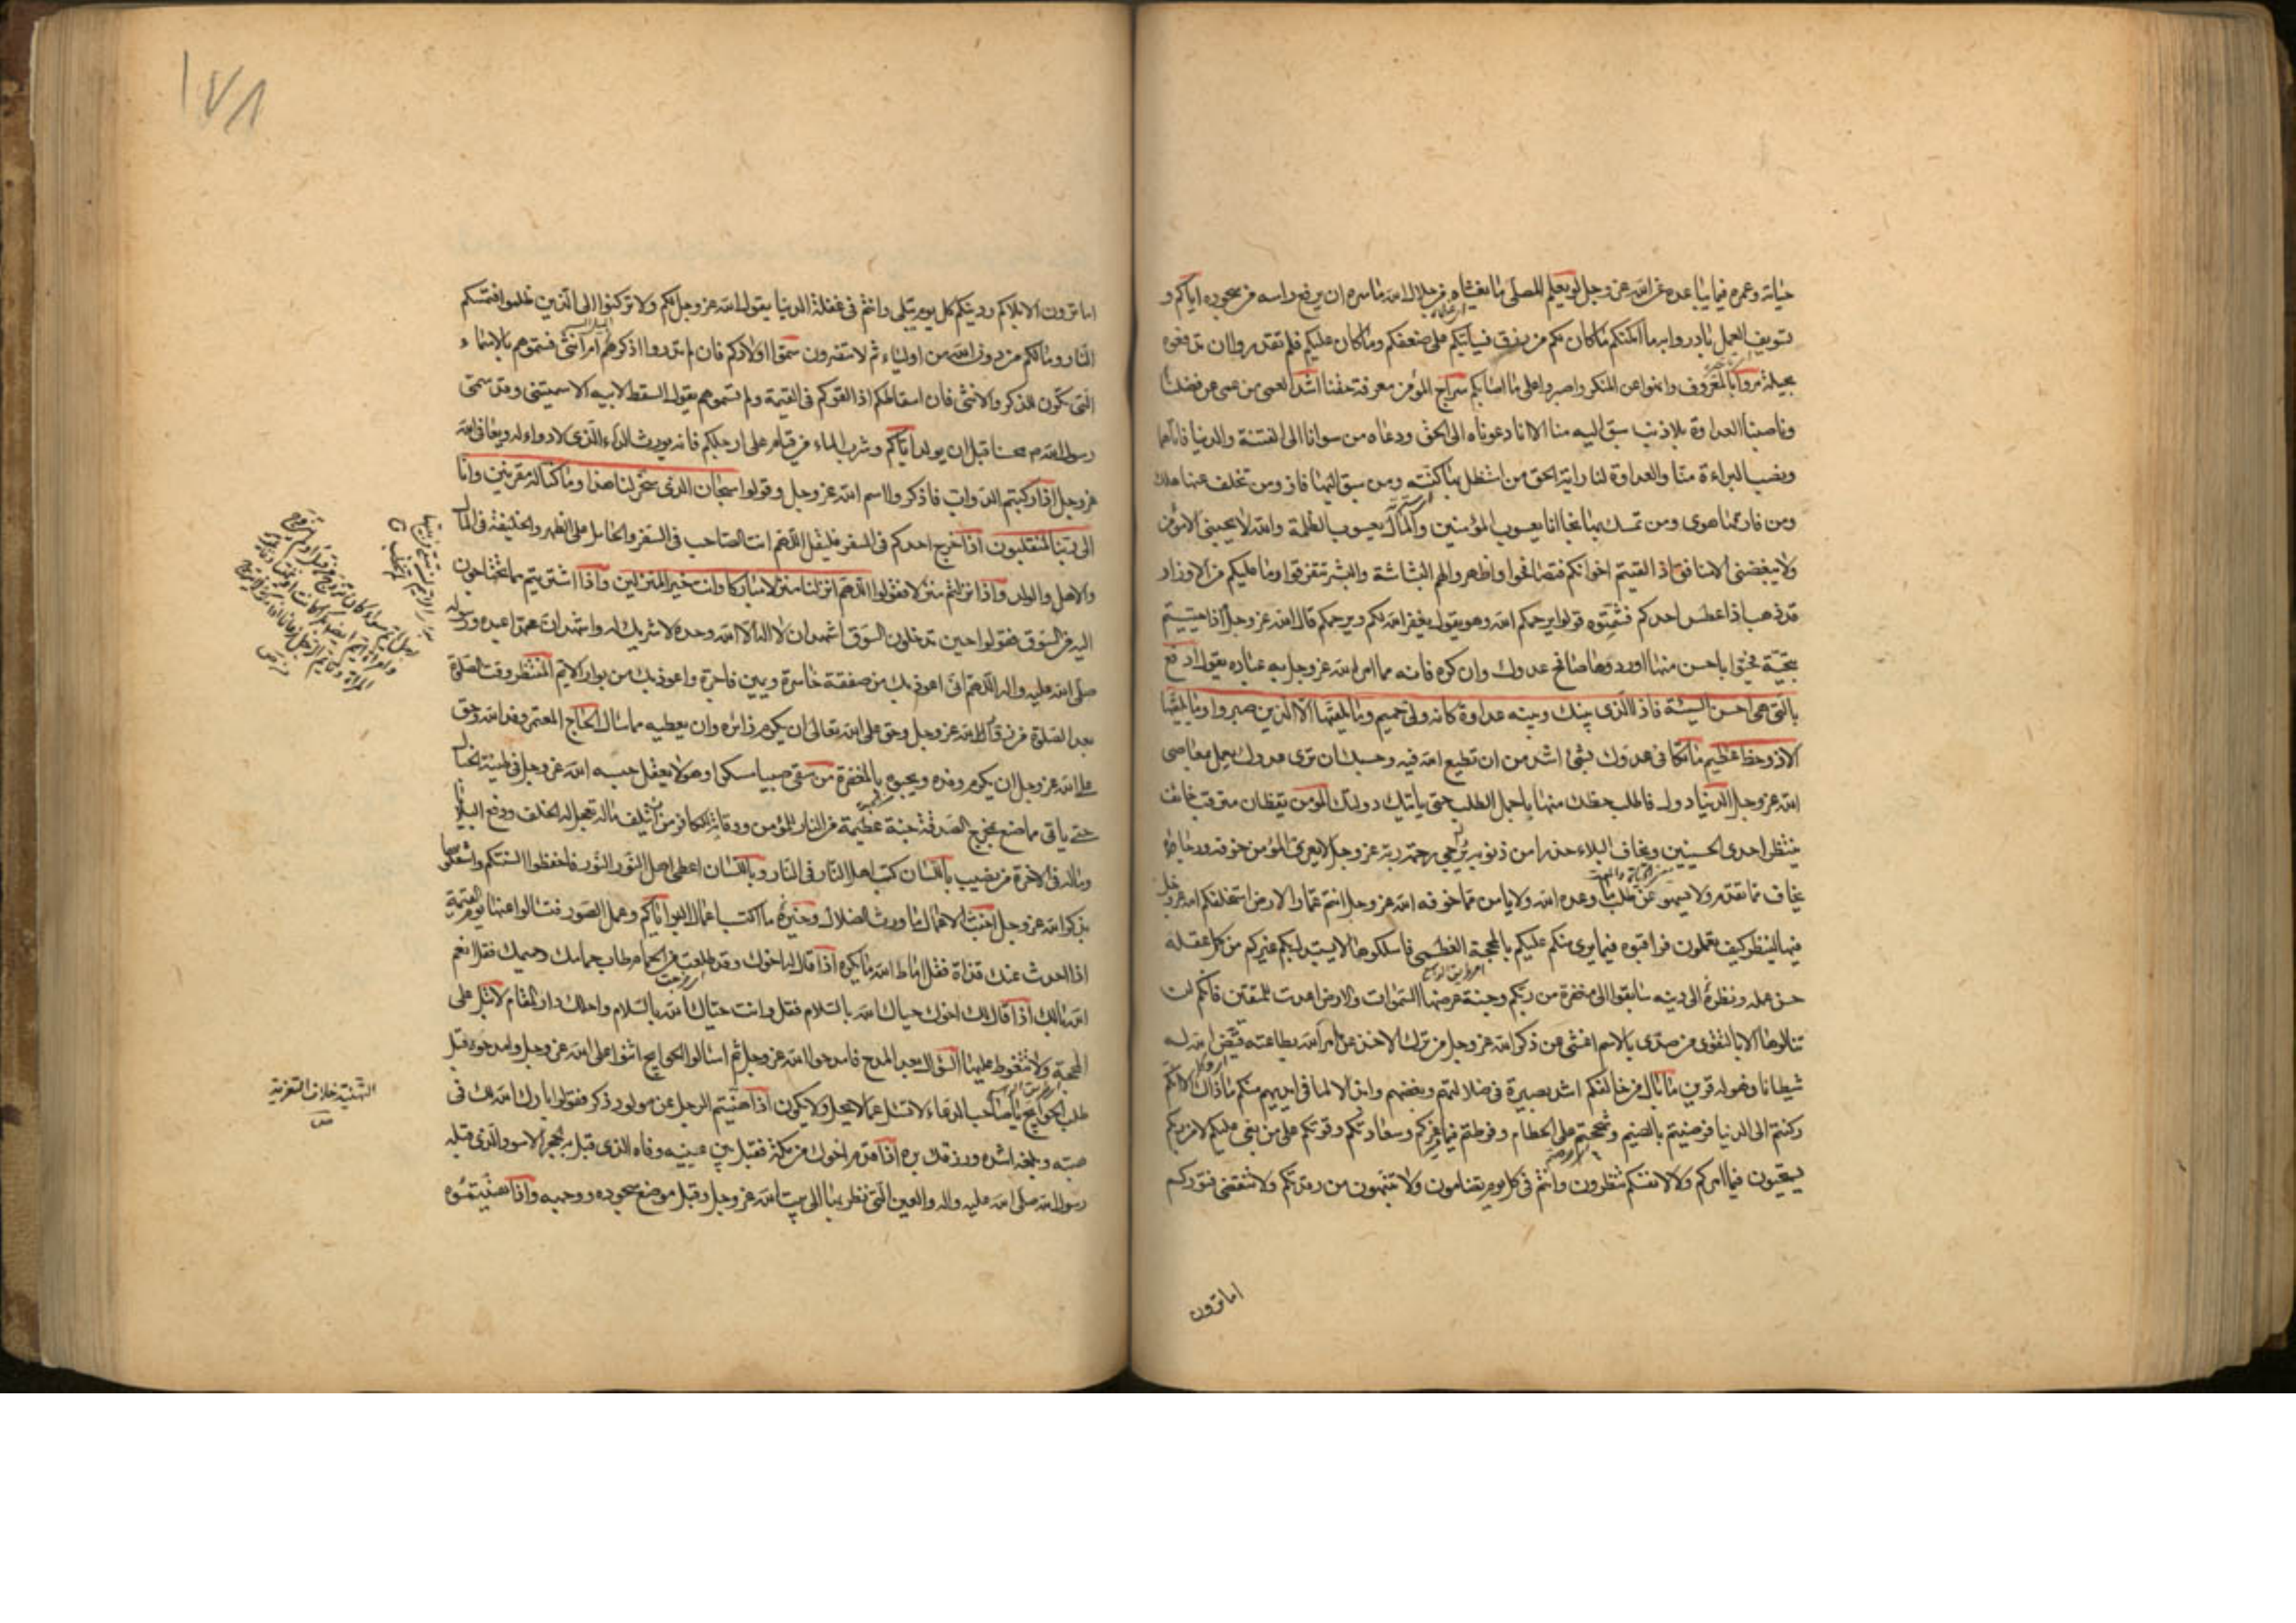 حياته وعمره فيما يباعده عن الله عز وجل لو يعلم المصلى ما يغشاه من جلال الله ما سره ان يرفع راسه من سجوده اياكم و
تسويف العمل بادروا به ما امكنكم ما كان لكم من رزق فسياتيكم على ضعفكم وما كان عليكم فلم تقدروا ان تدفعوه
بحيلة مروا بالمعروف وانهوا عن المنكر واصبروا على ما اصابكم سراج المؤمن معرفة حقنا اشد العمى من عمى عن فضلنا
وناصبنا العداوة بلا ذنب سبق اليه منا الا انا دعوناه الى الحق ودعاه من سوانا الى الفتنة والدنيا فاتاهما
ونصب البراءة منا والعداوة لنا راية الحق من استظل بها كنته ومن سبق اليها فاز ومن تخلف عنها هلك
ومن فارقها هوى ومن تمسك بها نجا انا يعسوب المؤمنين والمال يعسوب الظلمة والله لا يحبنى الا مؤمن
ولا يبغضنى الا منافق اذا لقيتم اخوانكم فتصافحوا واظهروا لهم البشاشة والبشر تتفرقوا وما عليكم من الاوزار
قد ذهب اذا عطس احدكم فشمتوه قولوا يرحمكم الله وهو يقول يغفر الله لكم ويرحمكم قال الله عز وجل اذا حييتم
بتحية فحيوا باحسن منها او ردوها صافح عدوك وان كره فانه مما امر الله عز وجل به عباده يقول ادفع
بالتى هى احسن السيئة فاذا الذى بينك وبينه عداوة كانه ولى حميم وما يلقيها الا الذين صبروا وما يلقيها
الا ذو حظ عظيم ما تكافى عدوك بشئ اشد من ان تطيع الله فيه وحسبك ان ترى عدوك يعمل بمعاصى
الله عز وجل الدنيا دول فاطلب حظك منها باجمل الطلب حتى ياتيك دولتك المؤمن يقظان مترقب خائف
ينتظر احدى الحسنيين ويخاف البلاء حذرا من ذنوبه يرجى رحمة ربه عز وجل لا يعرى المؤمن من خوفه ورجائه
يخاف مما تقدم ولا يسهو عن طلب ما وعده الله ولا يامن مما خوفه الله عز وجل انتم عمار الارض استخلفكم الله عز وجل
فيها لينظر كيف تعملون فراقبوه فيما يرى منكم عليكم بالمحجة العظمى فاسلكوها لا يستبدل بكم غيركم من كمل عقله
حسن عمله ونظره الى دينه سابقوا الى مغفرة من ربكم وجنة عرضها السموات والارض اعدت للمتقين فانكم لن
تنالوها الا بالتقوى من صدى بالاثم اعشى عن ذكر الله عز وجل من ترك الاخذ عن امر الله بطاعته قيض الله له
شيطانا فهو له قرين ما بال من خالفكم اشد بصيرة فى ضلالتهم وبغضهم وابذل لما فى ايديهم منكم ما ذاك الا انكم
ركنتم الى الدنيا فرضيتم بالضيم وشححتم على الحطام وفرطتم فيما فيه عزكم وسعادتكم وقوتكم على من بغى عليكم لا من ربكم
تستحيون فيما امركم ولا لانفسكم تنظرون وانتم فى كل يوم تضامون ولا تنتبهون من رقدتكم ولا تنقضى فتوركم
اما ترون
١٧٨
اما ترون الى بلادكم ودينكم كل يوم يبلى وانتم فى غفلة الدنيا يقول الله عز وجل لكم ولا تركنوا الى الذين ظلموا فتمسكم
النار وما لكم من دون الله من اولياء ثم لا تنصرون سموا اولادكم فان لم تدروا اذكر هم ام انثى فسموهم بالاسماء
التى تكون للذكر والانثى فان اسقاطكم اذا لقوكم فى القيمة ولم تسموهم يقول السقط لابيه الا سميتنى وقد سمى
رسول الله ص محسنا قبل ان يولد اياكم وشرب الماء من قيام على ارجلكم فانه يورث الداء الذى لا دواء له او يعافى الله
عز وجل اذا ركبتم الدواب فاذكروا اسم الله عز وجل وقولوا سبحان الذى سخر لنا هذا وما كنا له مقرنين وانا
الى ربنا لمنقلبون اذا خرج احدكم فى السفر فليقل اللهم انت الصاحب فى السفر والحامل على الظهر والخليفة فى المال
والاهل والولد واذا نزلتم منزلا فقولوا اللهم انزلنا منزلا مباركا وانت خير المنزلين واذا اشتريتم ما تحتاجون
اليه من السوق فقولوا حين تدخلون السوق اشهد ان لا اله الا الله وحده لا شريك له واشهد ان محمدا عبده ورسوله
صلى الله عليه واله اللهم انى اعوذ بك من صفقة خاسرة ويمين فاجرة واعوذ بك من بوار الايم المنتظر وقت الصلوة
بعد الصلوة من زوار الله عز وجل وحق على الله تعالى ان يكرم زائره وان يعطيه ما سال الحاج المعتمر وفد الله وحق
على الله عز وجل ان يكرم وفده ويحبوه بالمغفرة من سقى صبيا مسكرا وهو لا يعقل حبسه الله عز وجل فى طينة الخبال
حتى ياتى مما صنع بمخرج الصدقة جنة عظيمة من النار للمؤمن ووقاية للكافر من تلف ماله تعجل له الخلف ودفع البلايا
وما له فى الاخرة من نصيب باللسان كب اهل النار فى النار وباللسان اعطى اهل النور النور فاحفظوا السنتكم واشغلوها
بذكر الله عز وجل اخبث الاعمال ما ورث الضلال وخير ما اكتسب اعمال البر اياكم وعمل الصور فتسالوا عنها يوم القيمة
اذا اخذت عنك قذاة فقل اماط الله ما تكره اذا قال لك اخوك وقد طلعت من الحمام طاب حمامك وحميمك فقل انعم
الله بالك اذا قال لك اخوك حياك الله بالسلام فقل وانت حياك الله بالسلام واحلك دار المقام لا تبل على
المحجة ولا تتغوط عليها السؤال بعد المدح فامدحوا الله عز وجل ثم اسالوا الحوايج اثنوا على الله عز وجل وامدحوه قبل
طلب الحوايج يا صاحب الدعاء لا تسئل عما لا يحل ولا يكون اذا هنيتم الرجل عن مولود ذكر فقولوا بارك الله لك فى
هبته وبلغه اشده ورزقك بره اذا قدم اخوك من مكة فقبل بين عينيه وفاه الذى قبل به الحجر الاسود الذى قبله
رسول الله صلى الله عليه واله والعين التى نظر بها الى بيت الله عز وجل وقبل موضع سجوده ووجهه واذا هنيتموه
التهنية خلاف التعزية
ص